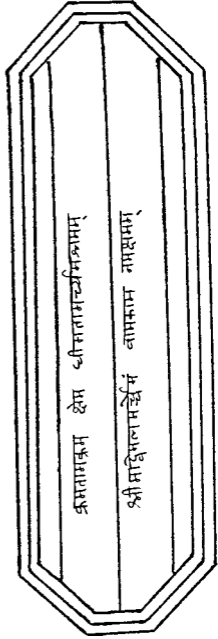 क्रमतामक्रमं क्षेमं धीमतामर्च्यमश्रमम्
श्रीमद्विमलमर्च्येमं वामकामं नमक्षमम्